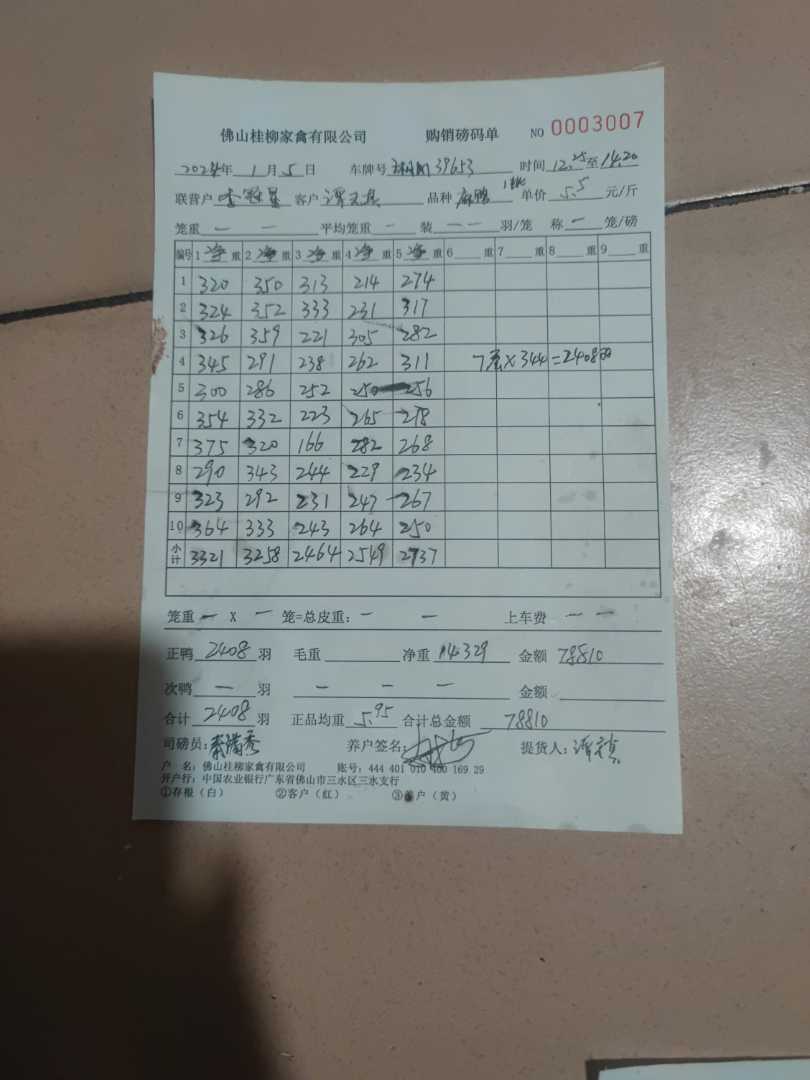 佛山桂柳家禽有限公司 购销磅码单 NO 0003007
2024年 1月 5日 车牌号 39653 时间 12.25至14.20
联营户 客户 品种 麻鸭 单价 5.5 元/斤
笼重 — — 平均笼重 — 装 — — 羽/笼 称 — 笼/磅
编号 1 净 重 2 净 重 3 净 重 4 净 重 5 净 重 6 重 7 重 8 重 9 重
1 320 350 313 214 274
2 324 352 333 231 317
3 326 359 221 305 282
4 345 291 238 262 311 7 X344=2408羽
5 300 286 252 250 256
6 354 332 223 265 278
7 375 320 166 282 268
8 290 343 244 229 234
9 323 292 231 247 267
10 364 333 243 264 250
小计 3321 3258 2464 2549 2737
笼重 — X — 笼=总皮重: — — 上车费 — —
正鸭 2408 羽 毛重 净重 14329 金额 78810
次鸭 — 羽 — — — 金额
合计 2408 羽 正品均重 5.95 合计总金额 78810
司磅员: 养户签名: 提货人:
户 名: 佛山桂柳家禽有限公司 账号: 444 401 010 400 169 29
开户行: 中国农业银行广东省佛山市三水区三水支行
①存根(白) ②客户(红) ③养户(黄)